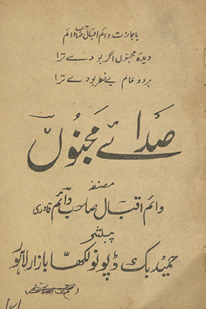 باجازت دائم اقبال دائم
دیدۂ مجنوں اگر بودے ترا
ہر دو عالم بے خطر بودے ترا
صدائے مجنوں
مصنفہ
دائم اقبال صاحب دائم قادری
پبلشر
حمید بک ڈپو نولکھا بازار لاہور